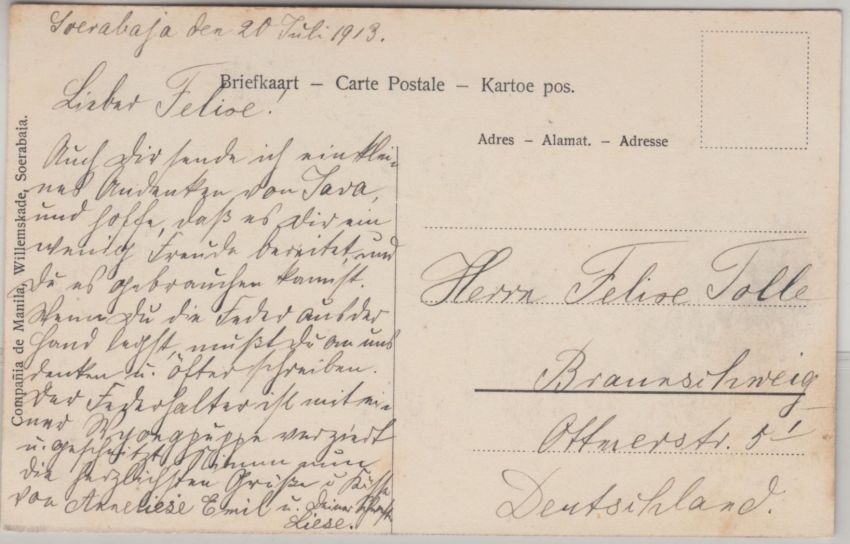 Soerabaja den 20 Juli 1913.
Lieber Felixe!
Auch Dir sende ich ein klei-
nes Andenken von Java,
und hoffe, daß es Dir ein
wenig Freude bereitet und
Du es gebrauchen kannst.
Wenn Du die Feder aus der
Hand legst, mußt Du an uns
denken u. öfter schreiben.
Der Federhalter ist mit ei-
ner Wajongpuppe verziert
u. geschnitzt. Nimm nun
die herzlichsten Grüße u Küsse
von Anneliese Emil u. Deiner
Liese.
Compañia de Manila, Willemskade, Soerabaia.
Briefkaart – Carte Postale – Kartoe pos.
Adres – Alamat. – Adresse
Herrn Felixe Tolle
Braunschweig
Ottmerstr. 5 I
Deutschland.